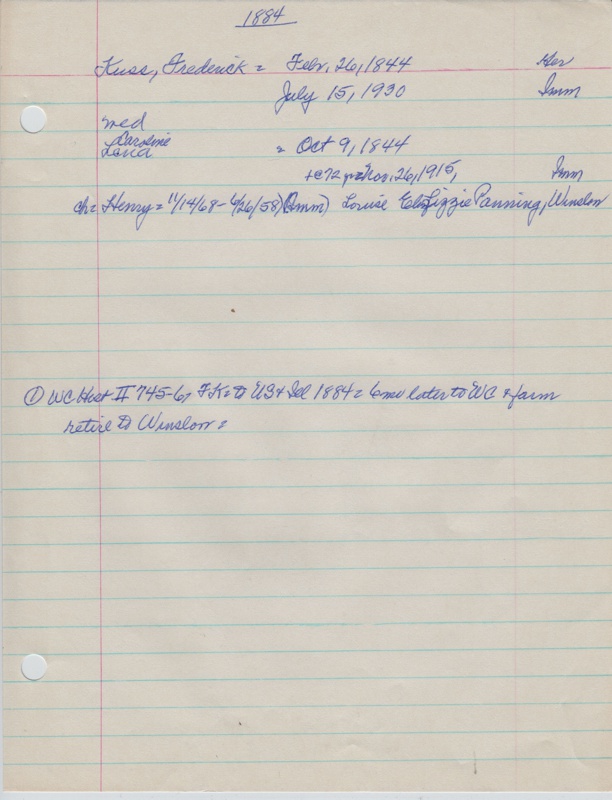 1884
Kuss, Frederick = Febr. 26, 1844 Ger
July 15, 1930 Imm
med
Caroline
Lena = Oct 9, 1844
+@72 yr= Nov. 26, 1915, Imm
ch= Henry= 11/14/68 - 4/26/58) (Imm) Louise Lizzie Panning, Winslow
① WC Hist II 745-6, FK= to US & Ill 1884= 6mo later to WC & farm
retire to Winslow=